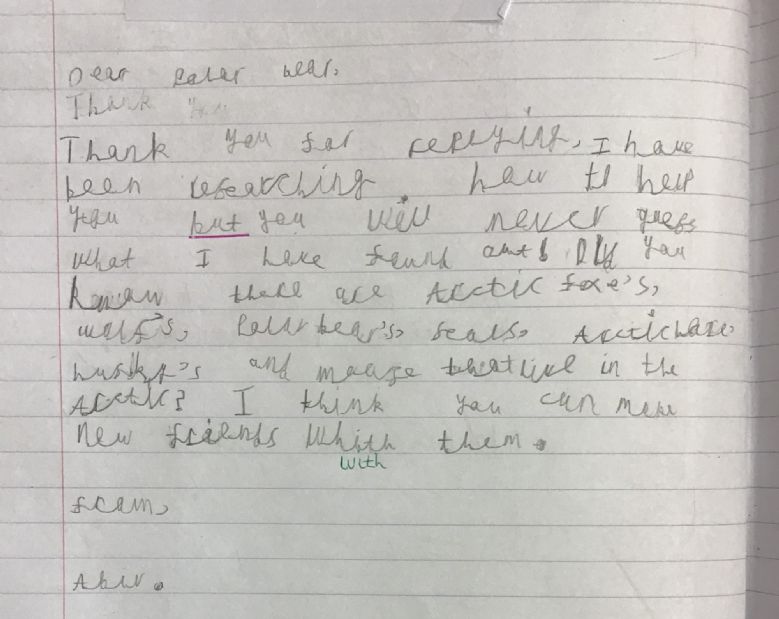 Dear Polar bear.
Thank you
Thank you for replying, I have
been researching how to help
you but you will never guess
what I have found out! Did you
know there are Arctic foxe's,
wolf's, Polar bear's, seals, Arctic hare,
husky's and moose that live in the
Arctic? I think you can make
new friends whith them.
with
from,